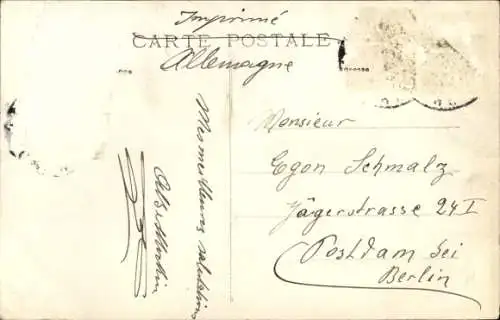 Imprimé
CARTE POSTALE
Allemagne
Mes meilleures salutations
Monsieur
Egon Schmalz
Jägerstrasse 24 I
Postdam bei
Berlin